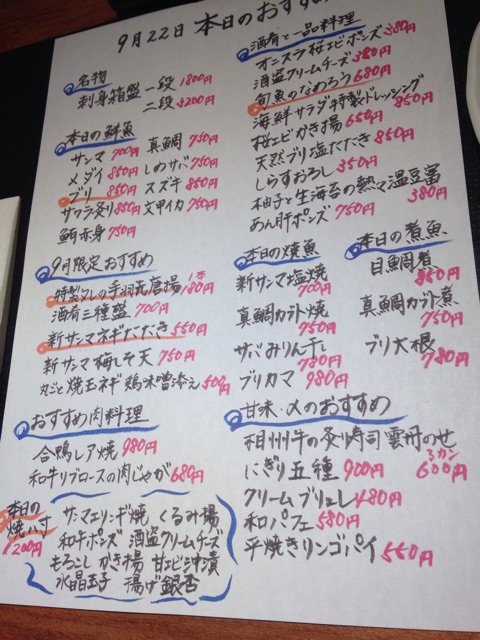 9月22日 本日のおすすめ
名物
刺身箱盛 一段 1800円
二段 3200円
本日の鮮魚
サンマ 700円 真鯛 750円
メダイ 850円 しめサバ 750円
ブリ 850円 スズキ 850円
サワラ炙り 850円 文甲イカ 750円
鮪赤身 750円
9月限定おすすめ
特製タレの手羽先唐揚 1本 180円
酒肴三種盛 700円
新サンマネギたたき 550円
新サンマ梅しそ天 750円
丸ごと焼玉ネギ 鶏味噌添え 500円
おすすめ肉料理
合鴨レア焼 980円
和牛リブロースの肉じゃが 680円
本日の焼八寸 1200円
サーマエリンギ焼 くるみ揚
和牛ポンズ 酒盗クリームチーズ
もろこしかき揚 甘エビ沖漬
水晶玉子 揚げ銀杏
酒肴と一品料理
オニスラ桜エビポンズ 380円
酒盗クリームチーズ 380円
旬魚のなめろう 680円
海鮮サラダ特製ドレッシング 850円
桜エビかき揚 650円
天然ブリ塩たたき 850円
しらすおろし 350円
柚子と生海苔の熱々温豆冨 380円
あん肝ポンズ 750円
本日の焼魚
新サンマ塩焼 700円
真鯛カブト焼 750円
サバみりん干し 780円
ブリカマ 980円
本日の煮魚
目鯛煮 850円
真鯛カブト煮 750円
ブリ大根 780円
甘味・〆のおすすめ
相州牛の炙り寿司 雲丹のせ 3カン 600円
にぎり五種 900円
クリームブリュレ 480円
和パフェ 580円
平焼きリンゴパイ 550円